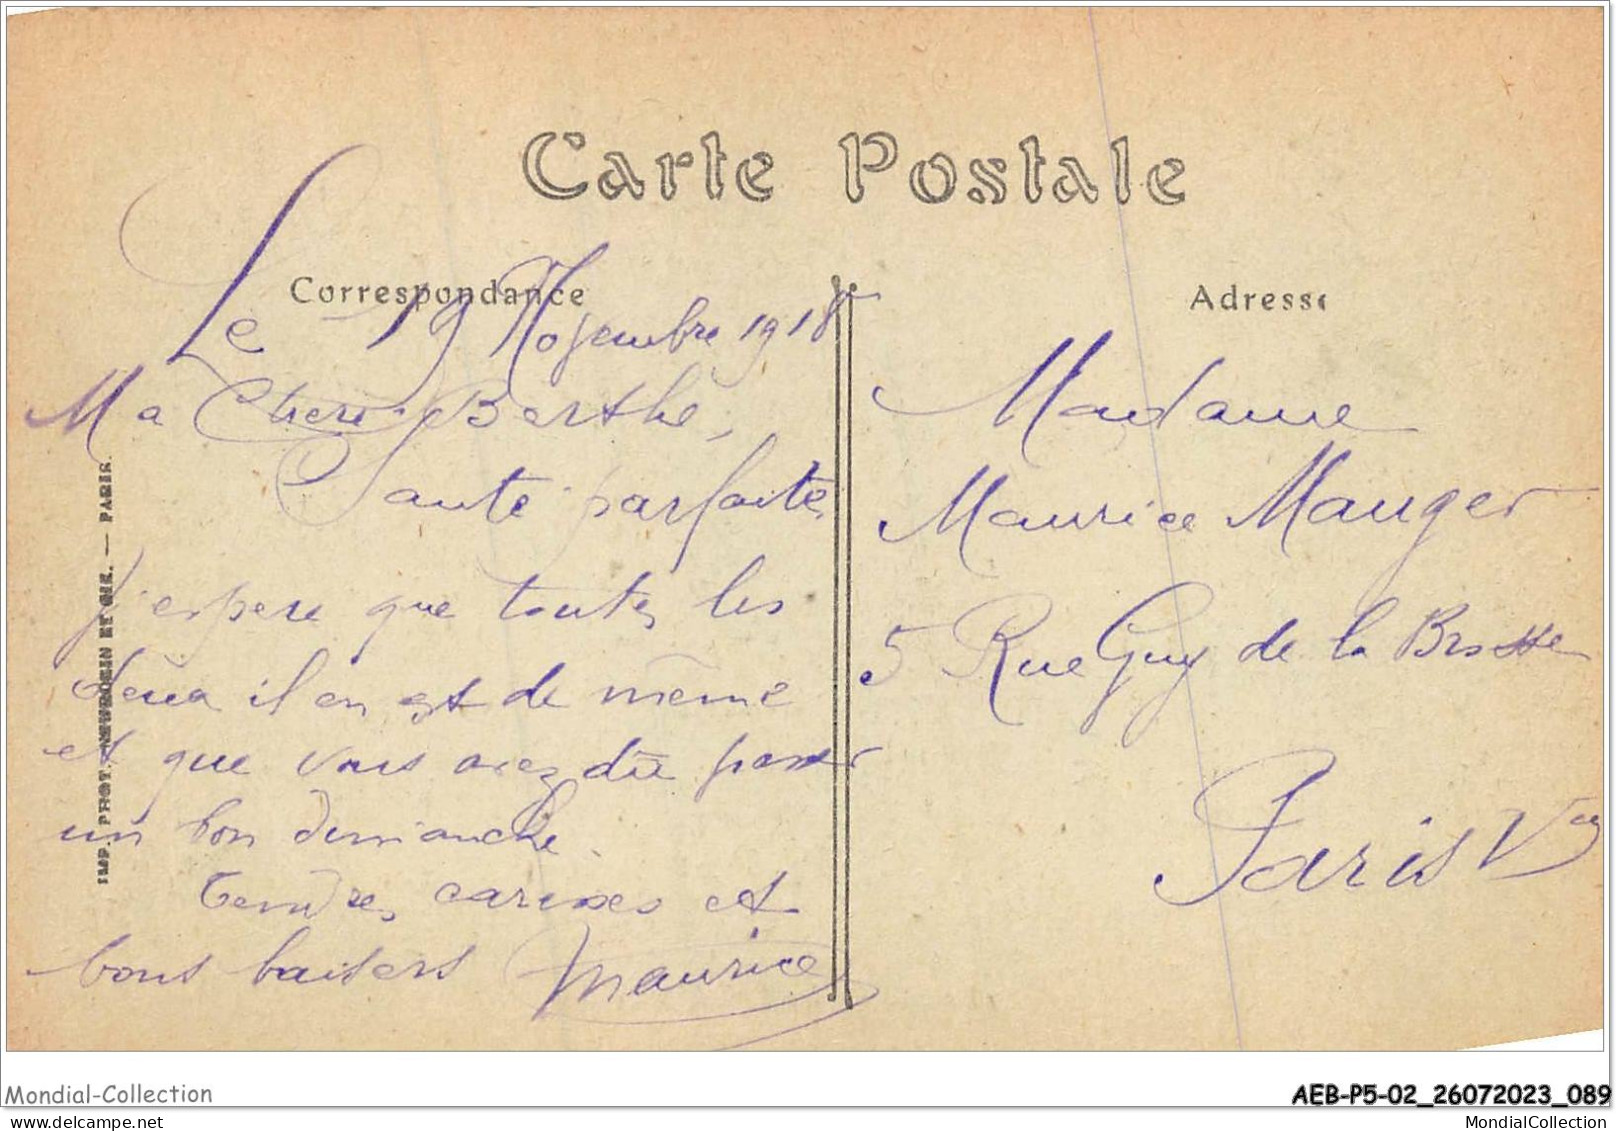 Carte Postale
Correspondance
Adresse
Le 19 Novembre 1918
Ma Chere Berthe,
Santé parfaite,
J'espere que toutes les
deux il en est de même
et que vous avez dû passer
un bon dimanche.
Tendres caresses et
bons baisers Maurice
Madame
Maurice Mauger
5 Rue Guy de la Brosse
Paris V
IMP. PHOT. NEURDEIN ET CIE. — PARIS.
Mondial-Collection
AEB-P5-02_26072023_089
MondialCollection